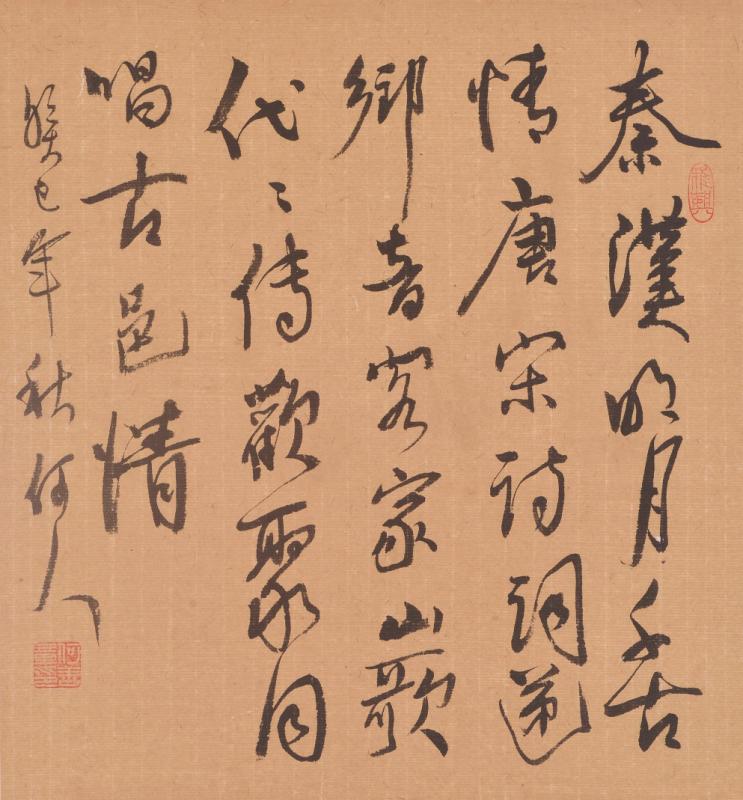 秦漢明月千古
情唐宋詩詞遞
鄉音客家山歌
代〻傳歡聚同
唱古邑情
癸巳年秋何人